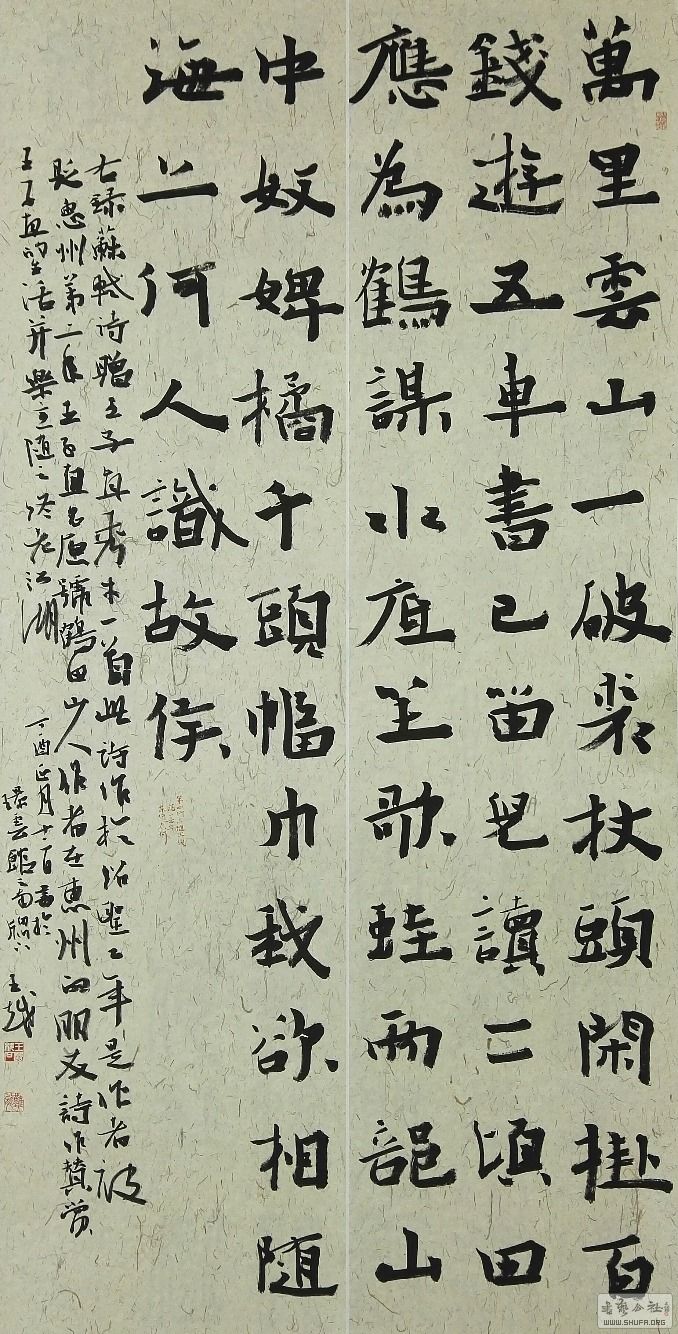 萬里雲山一破裘杖頭閑掛百
錢遊五車書已留兒讀二頃田
應為鶴謀水底笙歌蛙兩部山
中奴婢橘千頭幅巾我欲相隨
海上何人識故侯
右録蘇軾诗赠王子直秀才一首此诗作於绍聖二年是作者被
贬惠州第二年王子直名原號鶴田山人作者在惠州的朋友詩作賛赏
王子直的生活并樂意随之终老江湖
丁酉正月十二日書於
雲館南 王越
WWW.SHUFA.ORG